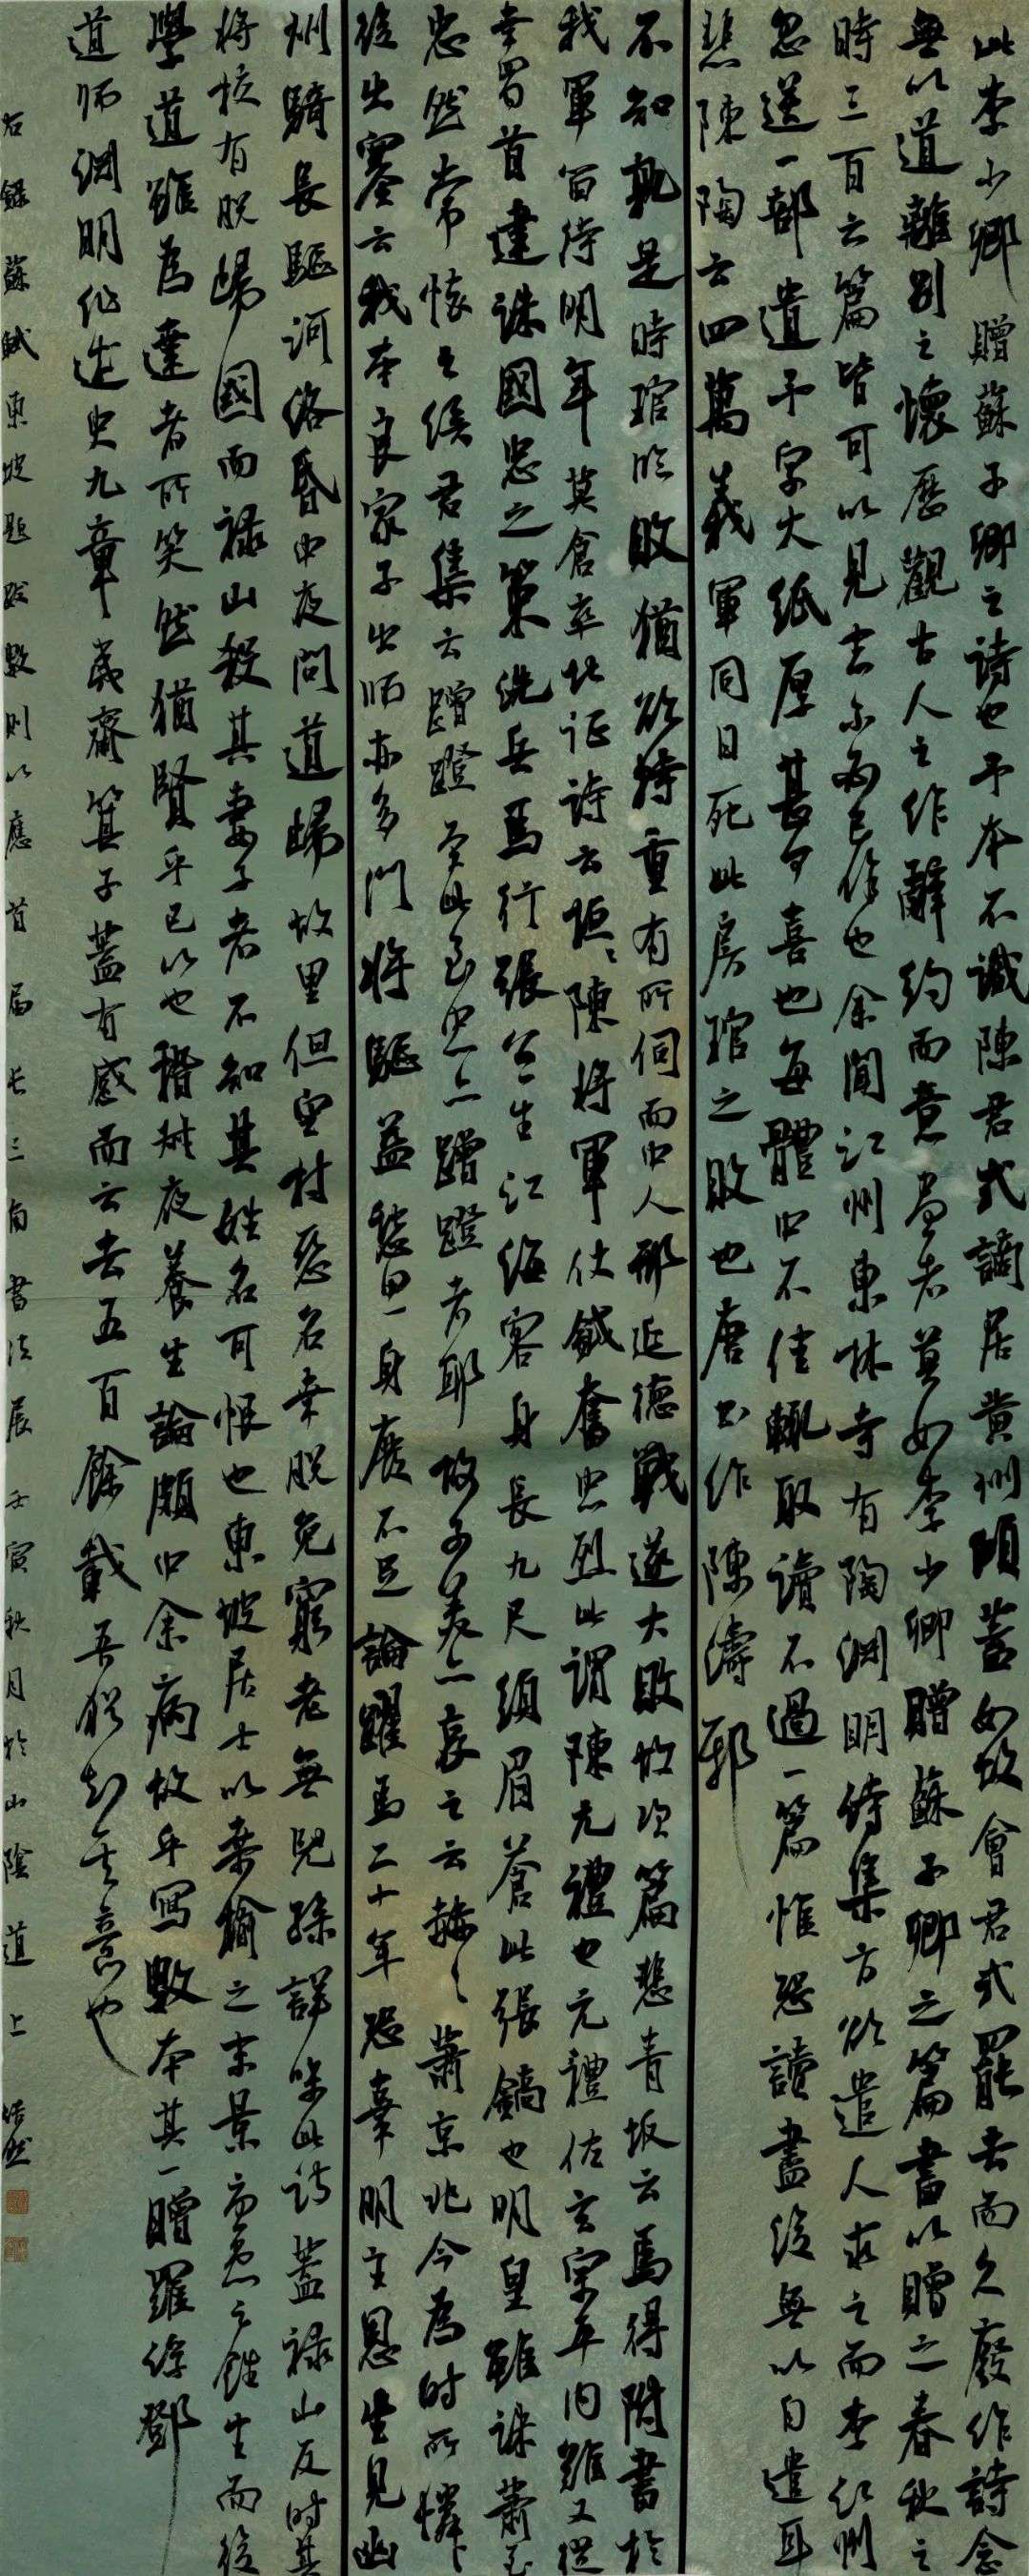 此李少卿贈蘇子卿之詩也予本不識陳君式謫居黃州傾蓋如故會君式罷去而久廢作詩念
無以道離別之懷歷觀古人之作辭約而意盡者莫如李少卿贈蘇子卿之篇書以贈之春秋之
時三百六篇皆可以見志不必己作也余聞江州東林寺有陶淵明詩集方欲遣人求之而李江州
忽送一部遺予字大紙厚甚可喜也每體中不佳輒取讀不過一篇惟恐讀盡後無以自遣耳
悲陳陶云四萬義軍同日死此房琯之敗也唐書作陳濤邪
不知孰是時琯臨敗猶欲持重有所伺而中人邢延德戰遂大敗故次篇悲青坂云焉得附書於
我軍留待明年莫倉卒北征詩云桓桓陳將軍仗鉞奮忠烈此謂陳元禮也元禮佐玄宗平內難又從
幸蜀首建誅國忠之策洗兵馬行張公一生江海客身長九尺鬚眉蒼此張鎬也明皇雖誅蕭至
忠然常懷之侯君集云蹭蹬至此至忠亦蹭蹬者耶故子美亦哀之云赫赫蕭京兆今為時所憐
後出塞云我本良家子出師亦多門將驕益愁思身廢不足論躍馬二十年恐辜明主恩坐見幽
州騎長驅河洛昏中夜間道歸故里但空村惡名幸脫免窮老無兒孫詳味此詩蓋祿山反時其
將校有脫歸國而祿山殺其妻子者不知其姓名可恨也東坡居士以桑榆之末景 憂患之餘生而後
學道雖為達者所笑然猶賢乎已以也嵇叔夜養生論頗中余病故手寫數本其一贈羅浮鄧
道師淵明作述史九章夷齊箕子蓋有感而云去五百餘載吾猶知其意也
右錄蘇軾東坡題跋數則以應首屆長三角書法展 壬寅秋月於山陰道上